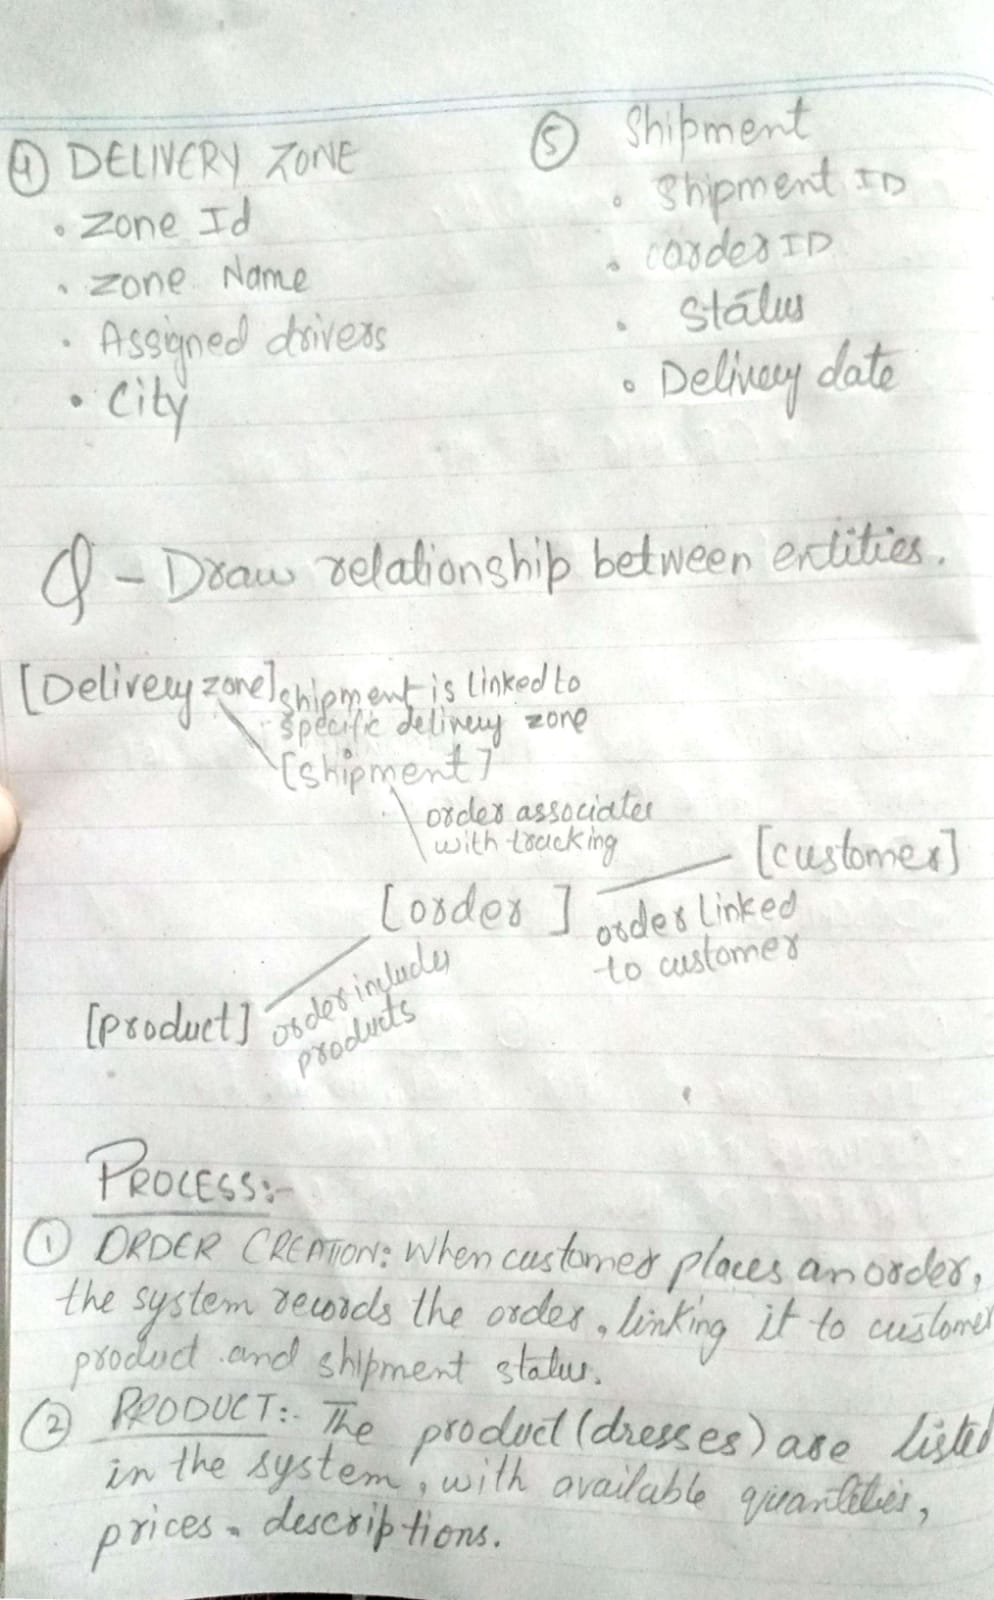 ④ DELIVERY ZONE
• Zone Id
• Zone Name
• Assigned drivers
• City
⑤ Shipment
• Shipment ID
• order ID
• Status
• Delivery date
Q - Draw relationship between entities.
[Delivery zone] shipment is linked to
specific delivery zone
[shipment]
order associates
with tracking
[customer]
[order]
order linked
to customer
[product]
order includes
products
PROCESS:-
① ORDER CREATION: When customer places an order,
the system records the order, linking it to customer
product and shipment status.
② PRODUCT:- The product (dresses) are listed
in the system, with available quantities,
prices, descriptions.